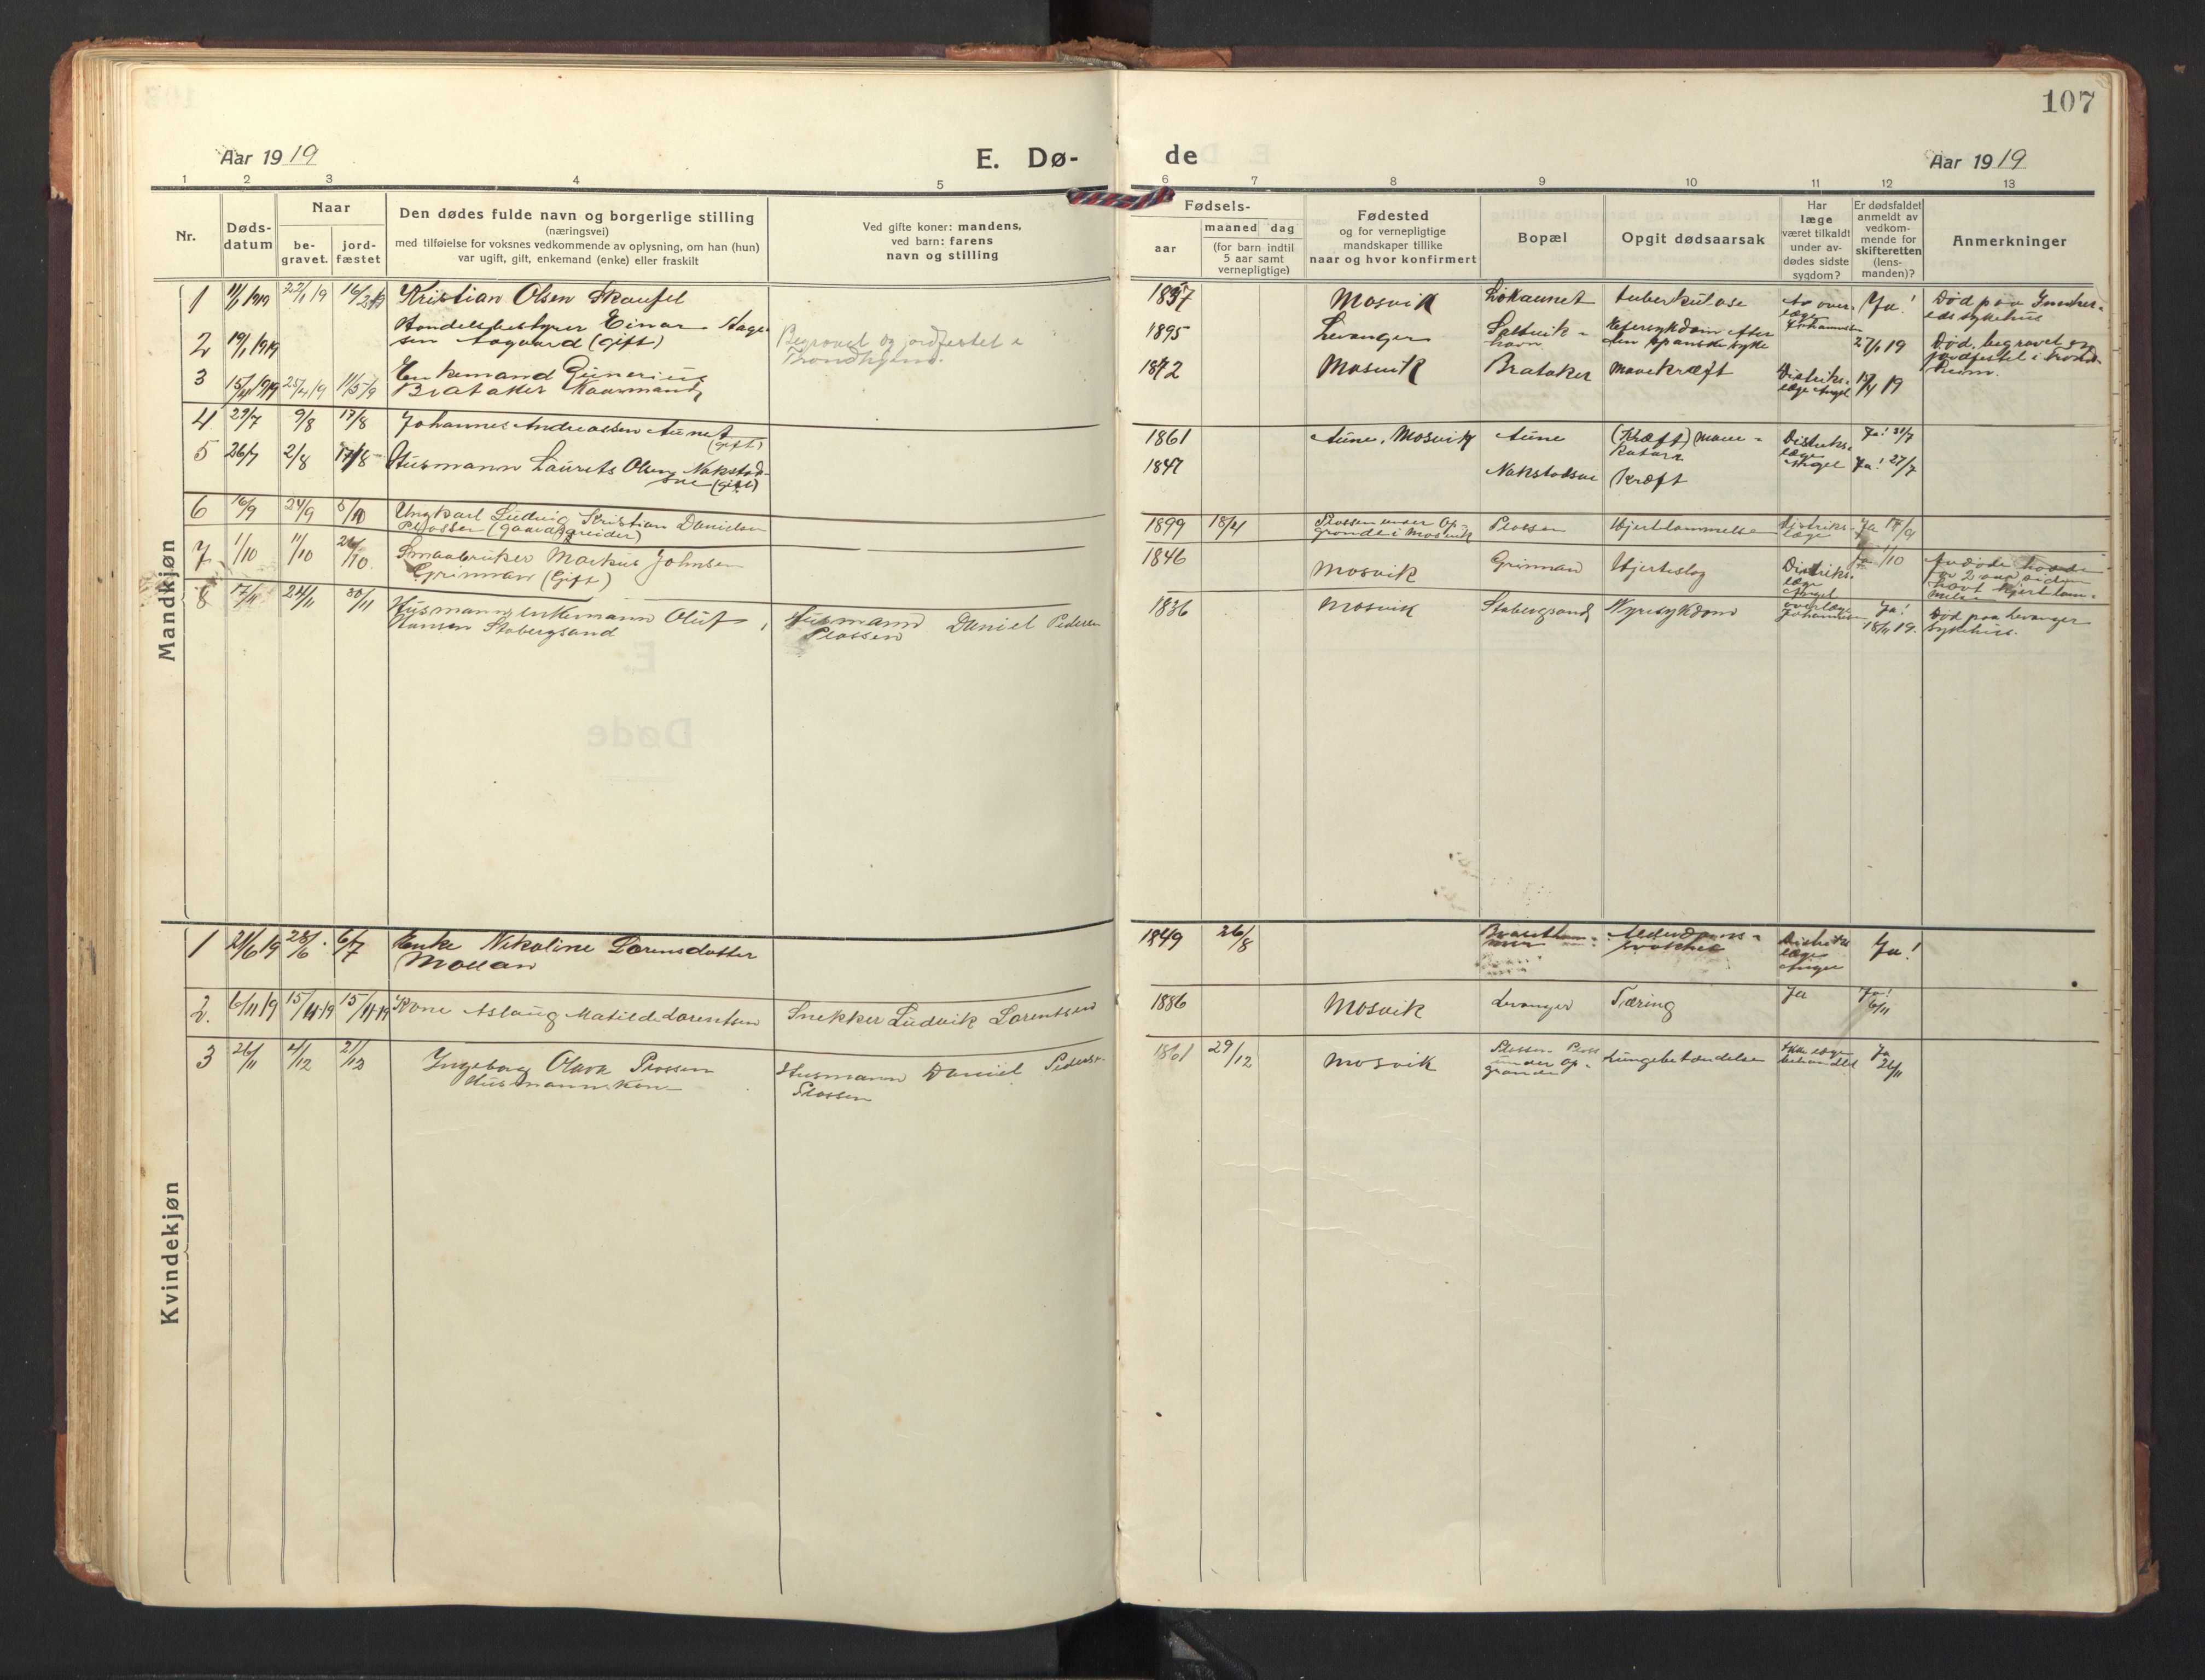 107
Aar 1919
E. Dø-
de
Aar 1919
1 2 3 4 5 6 7 8 9 10 11 12 13
Nr.
Døds-
datum
Naar
be-
gravet.
jord-
fæstet
Den dødes fulde navn og borgerlige stilling
(næringsvei)
med tilføielse for voksnes vedkommende av oplysning, om han (hun)
var ugift, gift, enkemand (enke) eller fraskilt
Ved gifte koner: mandens,
ved barn: farens
navn og stilling
Fødsels-
aar
maaned dag
(for barn indtil
5 aar samt
vernepligtige)
Fødested
og for vernepligtige
mandskaper tillike
naar og hvor konfirmert
Bopæl
Opgit dødsaarsak
Har
læge
været tilkaldt
under av-
dødes sidste
sygdom?
Er dødsfaldet
anmeldt av
vedkom-
mende for
skifteretten
(lens-
manden)?
Anmerkninger
Mandkjøn
1 11/1 1919 22/1 19 16/2 19 Kristian Olsen Skaufel
1837 Mosvik Løkaunet tuberkulose Ja!
Død paa Innher-
eds sykehus
2 19/1 1919 Handelsbestyrer Einar Hage
sen Aagaard (gift)
Begravet og jordfestet i
Trondhjem.
1895 Levanger Saltvik-
havn
Eftersykdom efter
den spanske syke
27/1 19
Død, begravet og
jordfestet i Trond-
heim.
3 15/4 1919 25/4 19 11/5 19 Enkemand Gunerius
Brataker Kaarmand
1872 Mosvik Brataker Mavekræft
Distrikts-
læge Angel
15/4 19
4 29/7 9/8 17/8 Johannes Andreassen Aunet
(gift)
1861 Aune, Mosvik Aune (Kræft) mave-
katarr
Distrikts-
læge
Angel
Ja! 31/7
5 26/7 2/8 17/8 Husmann Laurits Olsen Nakstad-
sve (gift)
1847 Nakstadsve Kræft Ja! 27/7
6 16/9 24/9 5/10 Ungkarl Ludvig Kristian Danielsen
Plossen (gaardsarbeider)
1899 18/4 Plossen under Op-
grande i Mosvik
Plossen Hjertelammelse Distrikts-
læge
Ja 17/9
7 1/10 11/10 26/10. Smaabruker Markus Johnsen
Grinnan (Gift)
1846 Mosvik Grinnan Hjerteslag Distrikts-
læge
Angel
Ja 1/10
Avdøde hadde
for 2 aar siden
havt hjertelam-
melse
8 17/11 24/11 30/11 Husmannsenkemann Oluf
Hansen Stabergsand
Husmann Daniel Pedersen
Plossen
1836 Mosvik Stabergsand Nyresykdom overlæge
Johannesen
Ja!
18/11 19.
Død paa Levanger
sykehus.
Kvindekjøn
1 21/6 19 28/6 6/7 Enke Nikoline Lorensdatter
Moean
1849 26/8 Alderdoms-
svakhet
Distrikts
læge
Angel
Ja!
2. 6/11 19 15/11-19 15/11-19 Kone Aslaug Matilde Lorentsen
Snekker Ludvik Lorentsen
1886 Mosvik Levanger Tæring Ja Ja!
6/11
3 26/11 4/12 21/12 Ingeborg Olava Plossen
Husmannskone
Husmann Daniel Peders-
Plossen
1861 29/12 Mosvik Plossen
under Op-
grande
Lungebetændelse Ikke læge-
behandlet
Ja
26/11